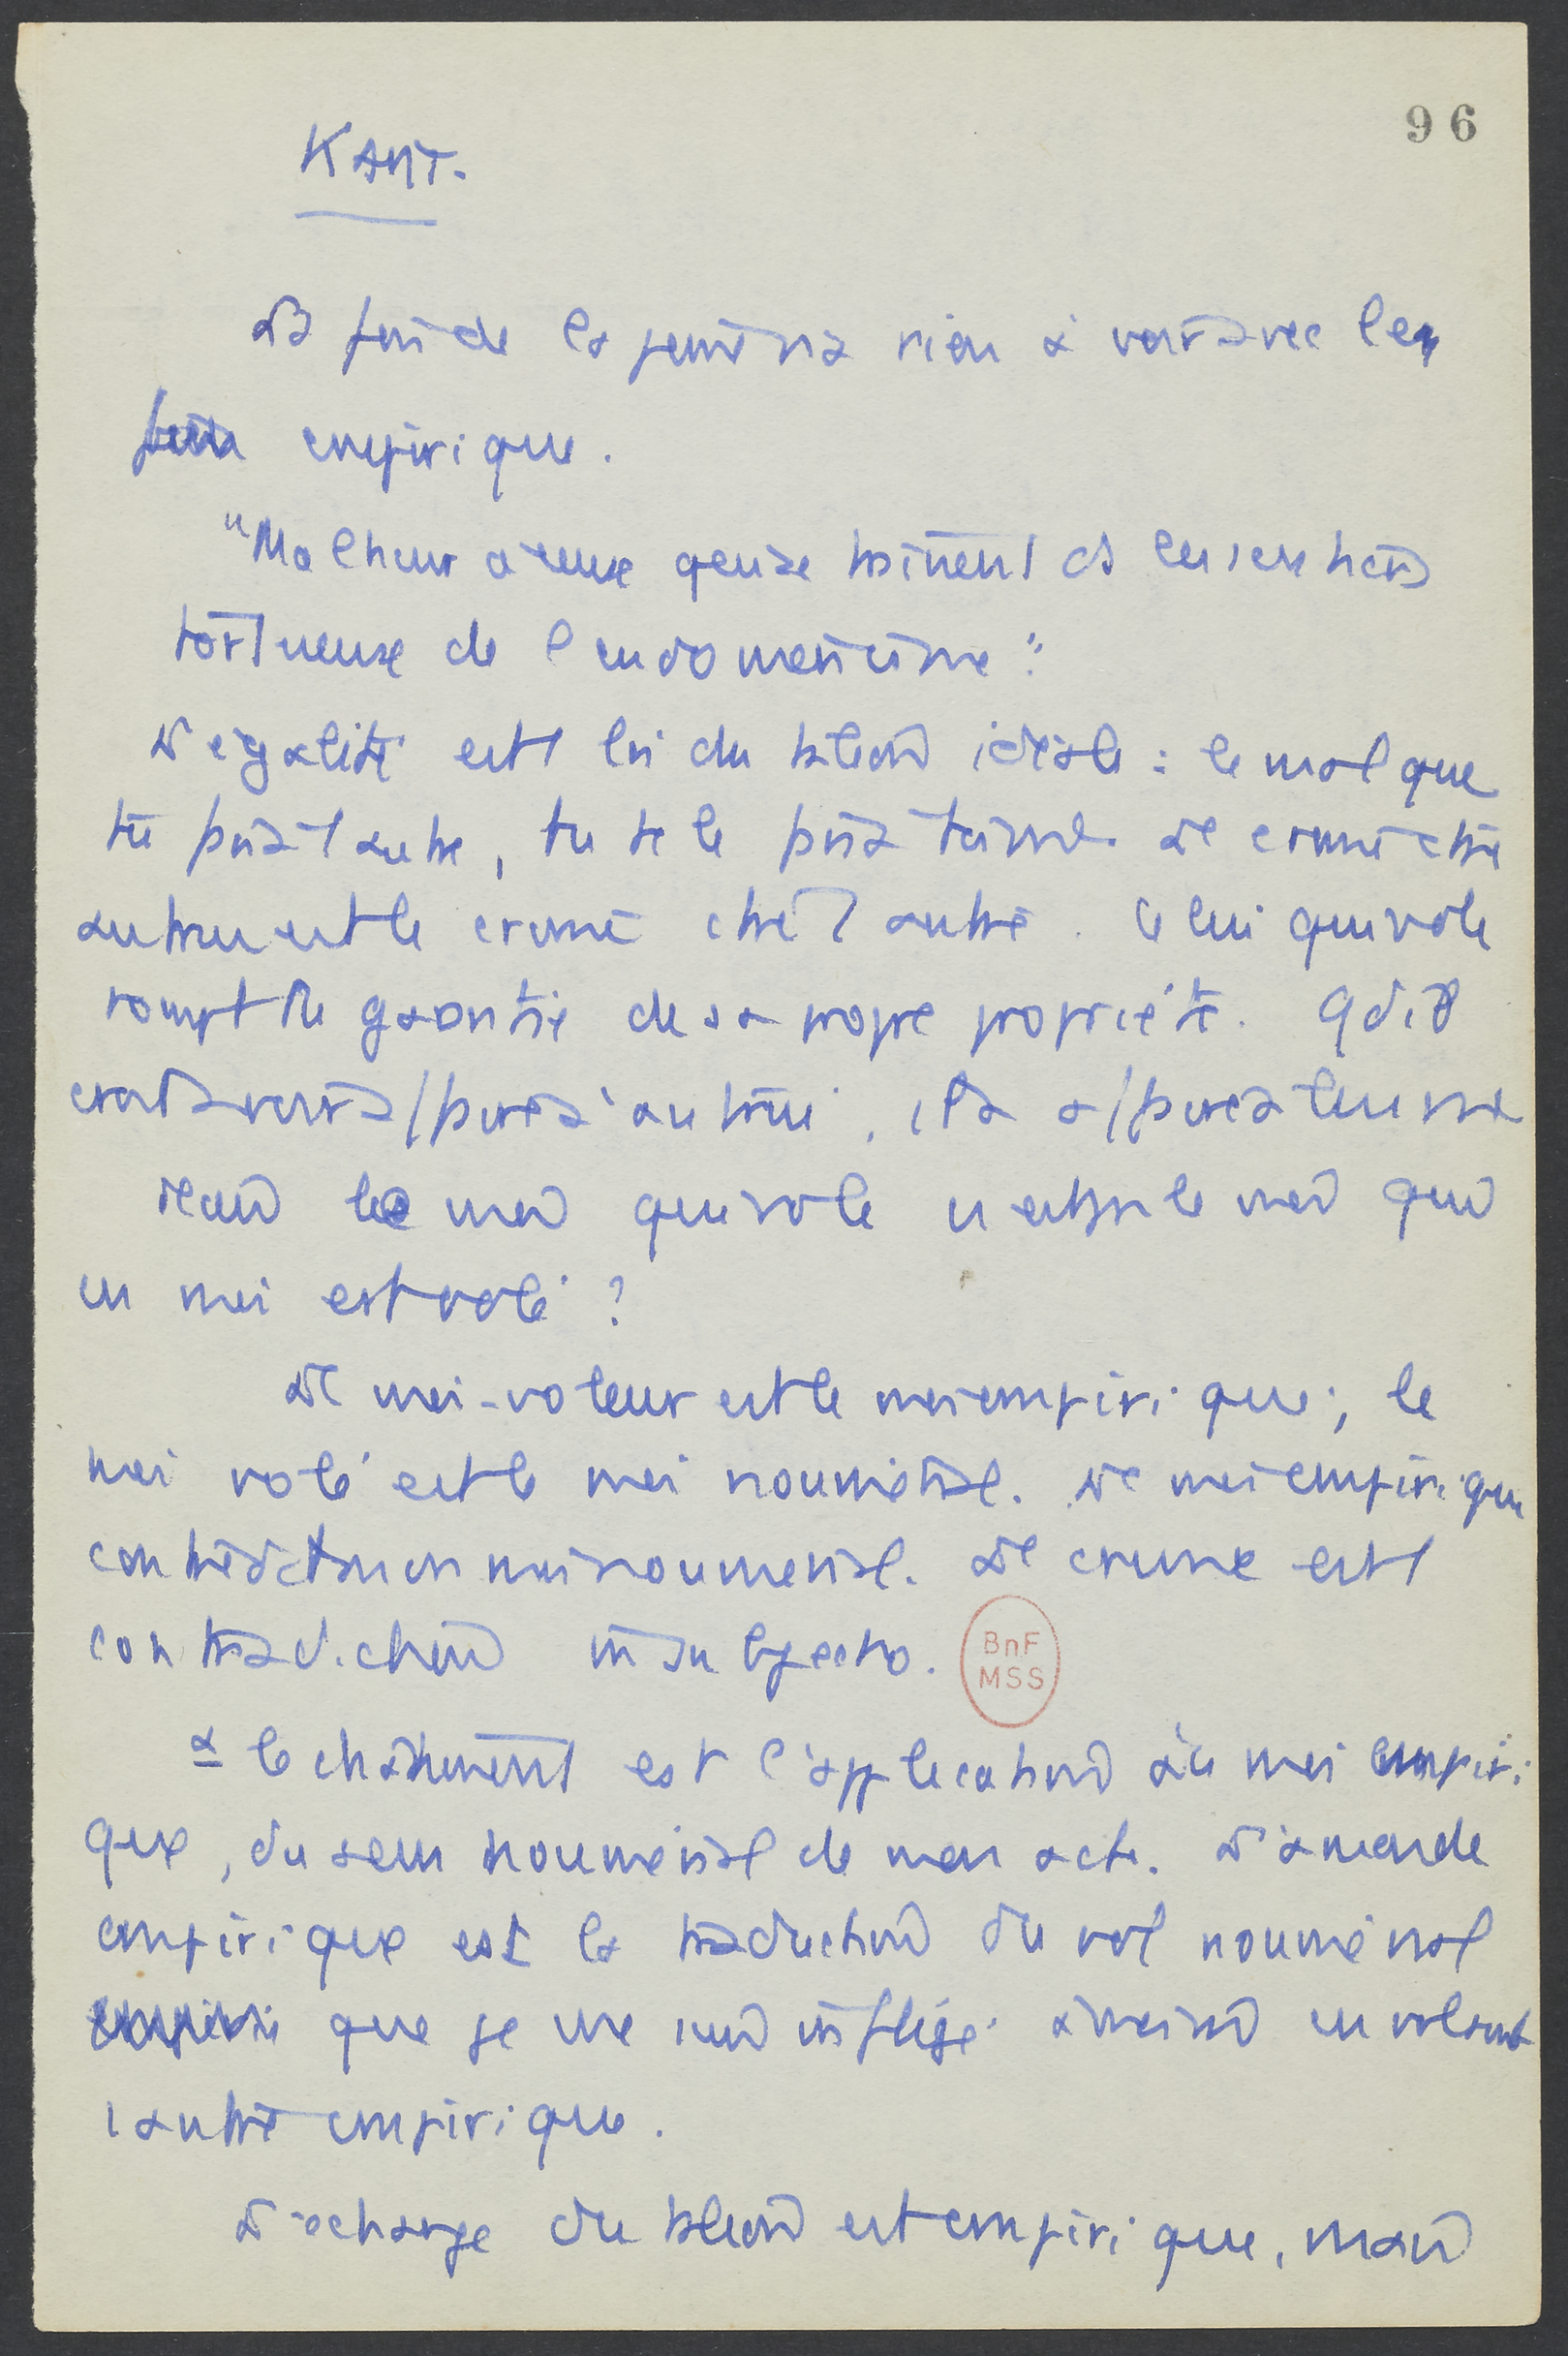 96
KANT.
La fin de la peine n'a rien à voir avec les
fins empirique.
"Malheur à ceux qui se traînent ds les sentiers
tortueux de l'eudomenisme".
L'égalité est loi du talion idéale : le mal que
tu fais à l'autre, tu te le fais à toi même. Le crime chez
autrui est le crime chez l'autre. Celui qui vole
rompt la garantie de sa propre propriété. Qd il
croit avoir à autrui, il a
le moi qui vole n'est pas le moi qui
en moi est volé ?
Le moi-voleur est le moi empirique ; le
moi volé est le moi nouménal. Le moi empirique
contredit mon moi nouménal. Le crime est
contradiction in subjecto.
& le châtiment est l'application au moi empiri-
que, du sens nouménal de mon acte. L'amende
empirique est la traduction du vol nouménal
que je me suis infligé à moi en volant
l'autre empirique.
L'échange du talion est empirique, mais
BnF
MSS